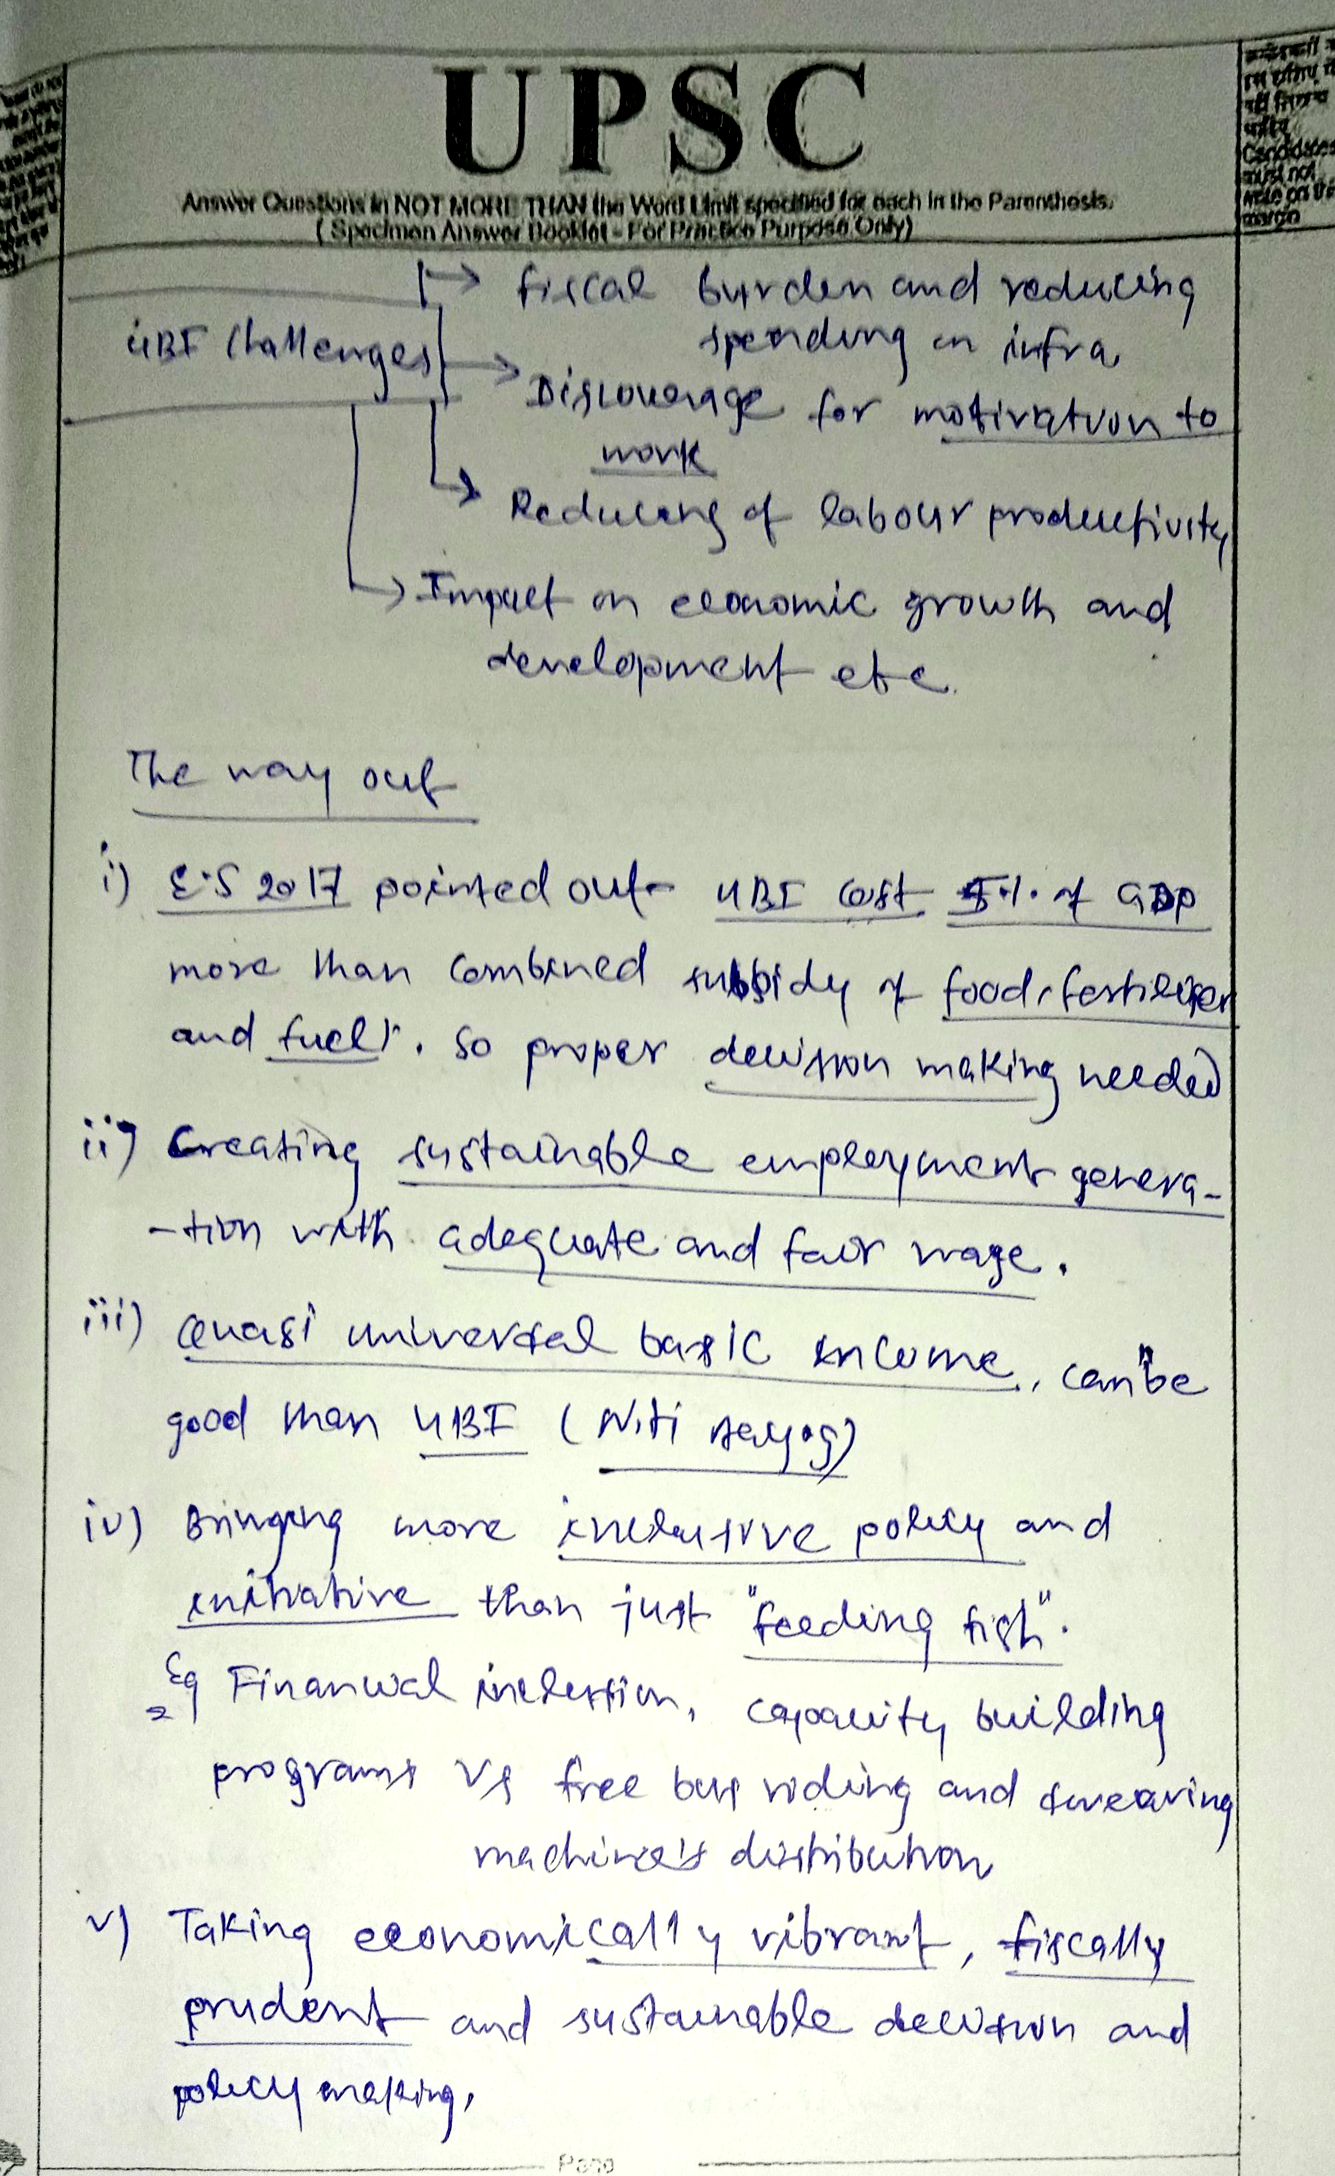 UPSC
Answer Questions in NOT MORE THAN the Word Limit specified for each in the Parenthesis.
( Specimen Answer Booklet - For Practice Purpose Only)
Candidates
must not
write on this
margin
UBI Challenges
→ fiscal burden and reducing
spending on infra
→ Discouverage for motivation to
work
→ Reducing of labour productivity
→ Impact on economic growth and
development etc.
The way out
i) E.S 2017 pointed out- UBI cost 5%. of GDP
more than combined subsidy of food, fertilizer
and fuel). So proper decision making needed
ii) Creating sustainable employment genera-
-tion with adequate and fair wage.
iii) Quasi universal basic income, can be
good than UBI (Niti Aayog)
iv) Bringing more inclusive policy and
initiative than just "feeding fish".
Eg Financial inclusion, capacity building
programs vs free bus riding and swearing
machine's distribution
v) Taking economically vibrant, fiscally
prudent and sustainable decision and
policy making.
Page